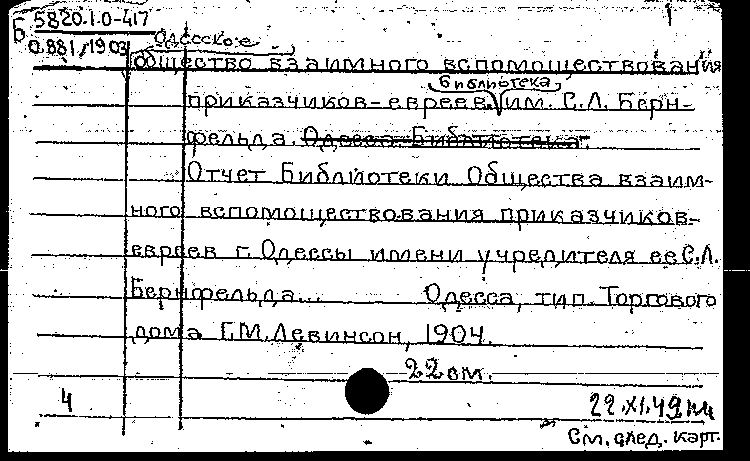 Б 5820.1.0-417
0.881/1903 Одесское
общество взаимного вспомоществования
библиотека
приказчиков-евреев. им. С.Л. Берн-
фельда. Одесса. Библиотека.
Отчет Библиотеки Общества взаим-
ного вспомоществования приказчиков-
евреев г. Одессы имени учредителя ее С.Л.
Бернфельда... Одесса, тип. Торгового
дома Г.М. Левинсон, 1904.
22 см.
4 22.XI.49
См. след. карт.